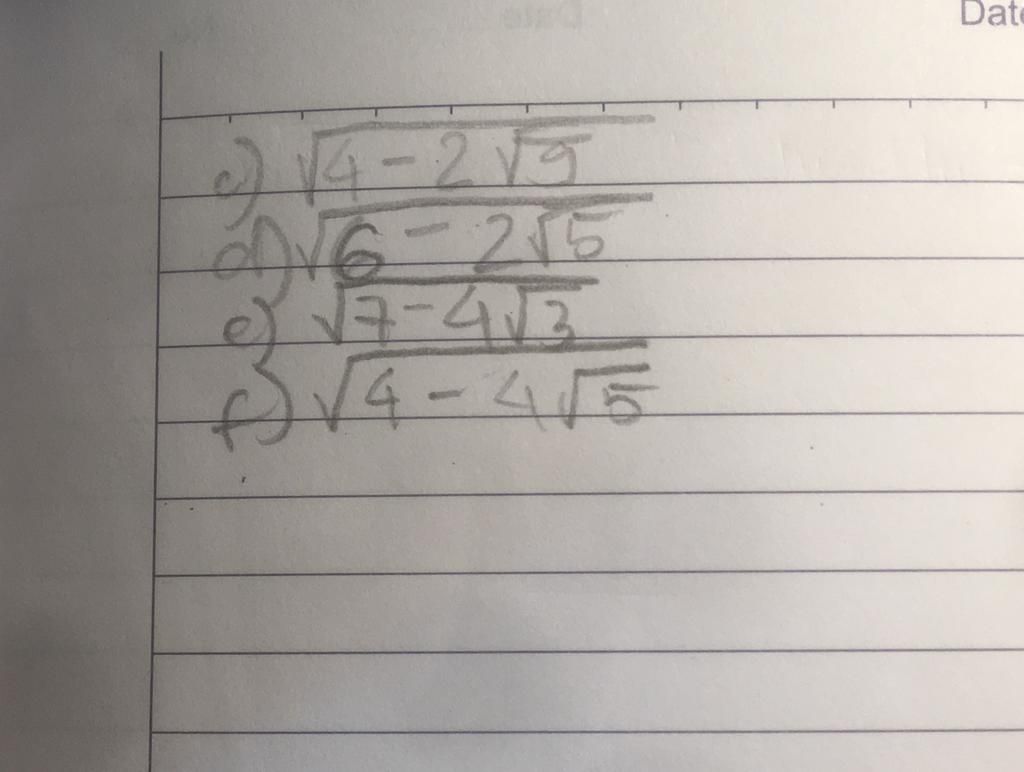 Date
c) √(4 - 2√9)
d) √(6 - 2√5)
e) √(7 - 4√3)
f) √(4 - 4√5)